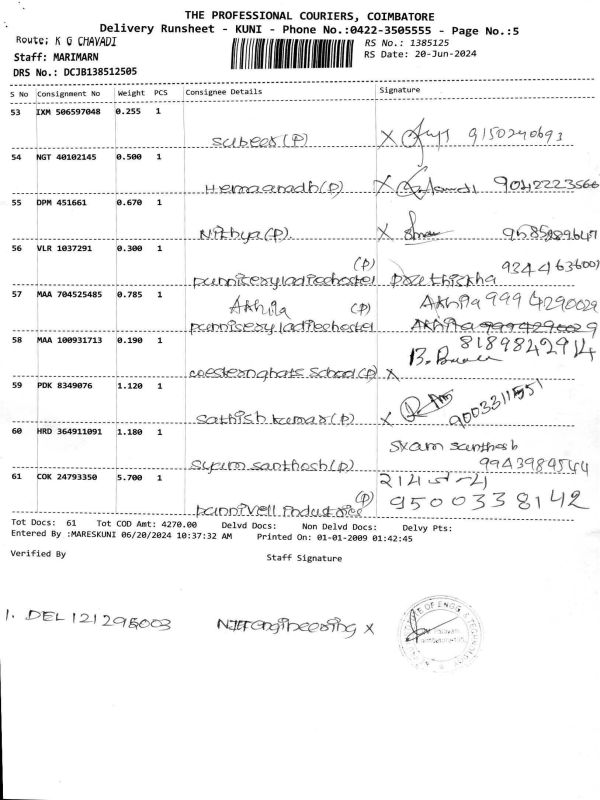 THE PROFESSIONAL COURIERS, COIMBATORE
Delivery Runsheet - KUNI - Phone No.:0422-3505555 - Page No.:5
Route: K G CHAVADI
RS No.: 1385125
Staff: MARIMARN
RS Date: 20-Jun-2024
DRS No.: DCJB138512505
S No Consignment No Weight PCS Consignee Details Signature
53 IXM 506597048 0.255 1
Subeer(P) X 9150240693
54 NGT 40102145 0.500 1
Hemaanadh(P) X 9042223566
55 DPM 451661 0.670 1
Nithya(P). X
56 VLR 1037291 0.300 1
(P) 9344636007
ladieshostel
57 MAA 704525485 0.785 1
Akhila (P) Akhila 9994290029
ladieshostel Akhila 9994290029
58 MAA 100931713 0.190 1
8189842914
westernghats School(P) X
59 PDK 8349076 1.120 1
Sathish kumar(P) X 9003311551
60 HRD 364911091 1.180 1
syam santhosh
Syam santhosh(P) 9943989544
61 COK 24793350 5.700 1
(P) 9500338142
Tot Docs: 61 Tot COD Amt: 4270.00 Delvd Docs: Non Delvd Docs: Delvy Pts:
Entered By :MARESKUNI 06/20/2024 10:37:32 AM Printed On: 01-01-2009 01:42:45
Verified By
Staff Signature
1. DEL 121295003 engineering X